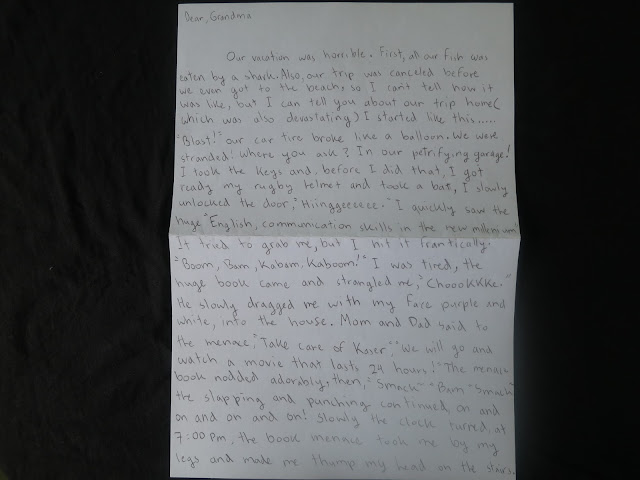 Dear, Grandma
Our vacation was horrible. First, all our fish was
eaten by a shark. Also, our trip was canceled before
we even got to the beach, so I can't tell how it
was like, but I can tell you about our trip home(
which was also devastating) I started like this.....
"Blast!" our car tire broke like a balloon. We were
stranded! Where you ask? In our petrifying garage!
I took the keys and, before I did that, I got
ready my rugby helmet and took a bat, I slowly
unlocked the door, "Hiinggeeeeee." I quickly saw the
huge "English, communication skills in the new millenium"
It tried to grab me, but I hit it frantically.
"Boom, Bam, Kabam, Kaboom!" I was tired, the
huge book came and strangled me, "ChoooKKKe."
He slowly dragged me with my face purple and
white, into the house. Mom and Dad said to
the menace, "Take care of Kaser", "We will go and
watch a movie that lasts 24 hours!" The menace
book nodded adorably, then, "Smack" "Bam" "Smack"
the slapping and punching continued on and
on and on and on! Slowly the clock turned, at
7:00 Pm, the book menace took me by my
legs and made me thump my head on the stairs.